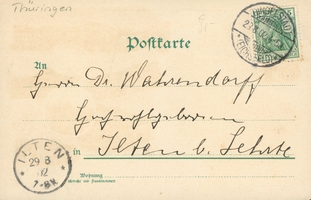 Thüringen
Postkarte
An
Herrn Dr. Wahrendorff
Hochwohlgeboren
in Ilten b. Lehrte
Wohnung
ILTEN
29 8
02
7-8V.